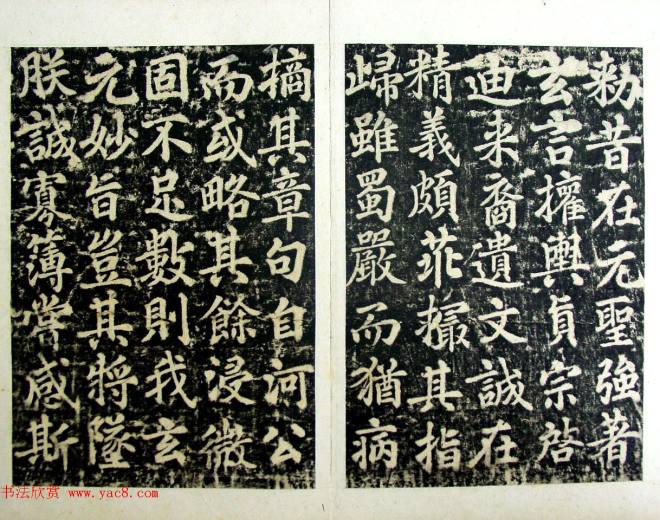 勅昔在元聖強著
玄言權輿真宗啓
迪来裔遺文誠在
精義頗乖撮其指
歸雖蜀嚴而猶病
摘其章句自河公
而或略其餘浸微
固不足數則我玄
元妙旨豈其將墜
朕誠寡薄嘗感斯
书法欣赏 www.yac8.com